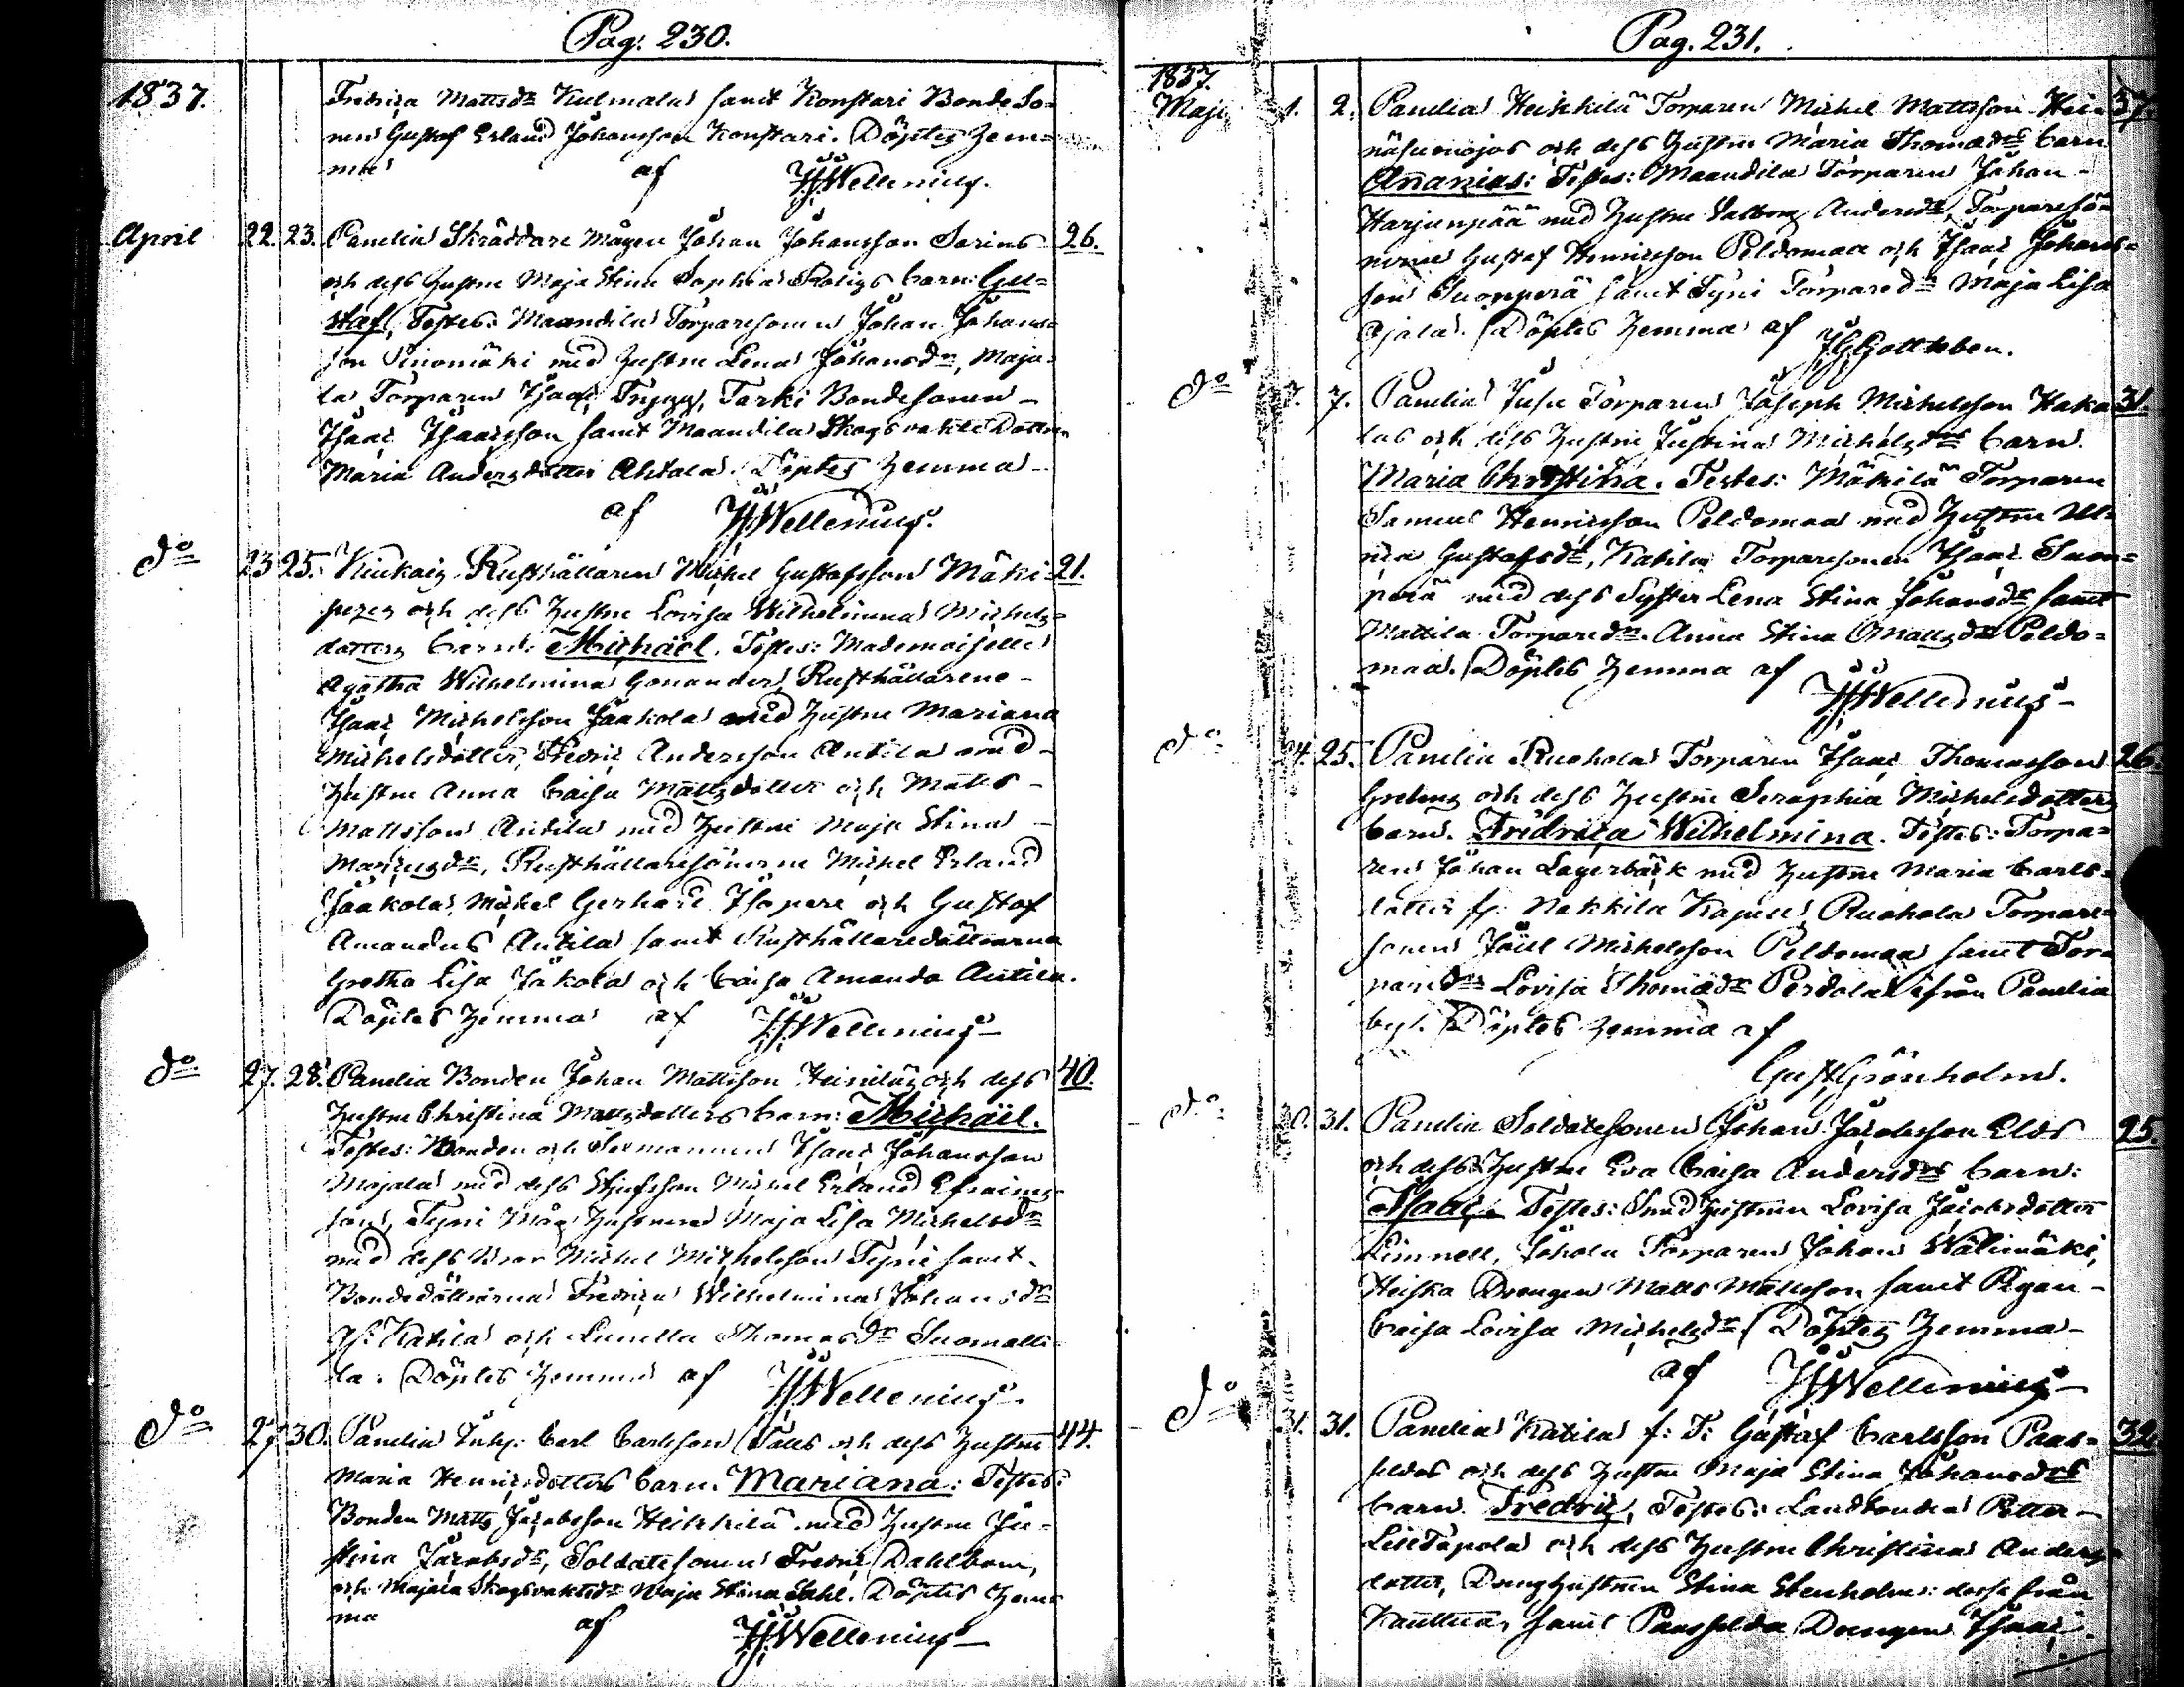 Pag: 230.
1837.
Fredrica Mattsdr Kulmala samt Konstari Bonde So=
nen Gustaf Erland Johansson Konstari. Döptes hem=
ma af Wellenius.
April 22. 23. Panelia Skräddare Mågen Johan Johansson Sarins 26.
och dess Hustru Maja Stina Sophia Roligs barn: Gu=
staf, Testes: Maandila Torparesonen Johan Johans=
son Sinomäki med Hustru Lena Johansdr, Maja=
la Torparen Isaac Trygg, Tarki Bondesonen
Isaac Isaacsson samt Maandila Skogsvakts Dottren
Maria Andersdotter Ahtola. Döptes hemma
af Wellenius.
do 23 25. Kiukais Rusthållaren Michel Gustafsson Mäki= 21.
peres och dess Hustru Lovisa Wilhelmina Michels=
dotters barn: Michaël. Testes: Mademoiselle
Agatha Wilhelmina Gonander, Rusthållarene
Isaac Michelsson Jaakola med Hustru Mariana
Michelsdotter, Fredric Andersson Antila med
Hustru Anna Caisa Mattsdotter och Matts
Mattsson Antila med Hustru Maja Stina
Marcusdr, Rusthållaresönerne Michel Erland
Jaakola, Michel Gerhard Isopere och Gustaf
Amandus Antila samt Rusthållaredöttrarna
Gretha Lisa Jakola och Caisa Amanda Antila.
Döptes hemma af Wellenius
do 27. 28. Panelia Bonden Johan Mattsson Heinilas och dess 40.
Hustru Christina Mattsdotters barn: Michaël.
Testes: Bonden och Sexmannen Isaac Johansson
Majala med dess Stjufson Michel Erland Efraims=
son, Tyni Måg Hustrun Maja Lisa Michelsdr
med dess Bror Michel Michelsson Tyni samt
Bondedöttrarna Fredrica Wilhelmina Johansdr
Katila och Lunella Thomasdr Suomatti=
la. Döptes hemma af Wellenius
do 27 30. Panelia Inhs: Carl Carlsson Salls och dess Hustru 44.
Maria Henricsdotters barn. Mariana: Testes:
Bonden Matts Jacobsson Heikkilä med Hustru Ju=
stina Jacobsdr, Soldatesonen Fredric Dahlbom,
och Majala Skogsvaktsdr Maja Stina Stahl. Döptes hem=
ma af Wellenius
Pag. 231.
1837.
Maji 1. 2. Panelia Heikkilä Torparen Michel Mattsson Hei= 37.
näsuonojas och dess Hustru Maria Thomasdrs barn
Ananias: Testes: Maandila Torparen Johan
Harjunpää med Hustru Valborg Andersdr, Torparesö=
nerne Gustaf Henricsson Peldomaa och Isaac Johans=
son Suonperä samt Tyni Torparedr Maja Lisa
Ojala. Döptes hemma af J G Gottleben.
do 7. 7. Panelia Jusu Torparen Joseph Michelsson Haka= 31.
las och dess Hustru Justina Michelsdrs barn.
Maria Christina. Testes: Mäkilä Torparen
Samuel Henricsson Peldomaa med Hustru Ul=
rica Gustafsdr, Katila Torparesonen Isaac Suon=
perä med dess Syster Lena Stina Johansdr samt
Mattila Torparedr Anna Stina Mattsdr Peldo=
maa. Döptes hemma af Wellenius
do 24. 25. Panelia Ruohola Torparen Isaac Thomasson 26.
Grelens och dess Hustru Seraphia Michelsdotters
barn. Fredrica Wilhelmina. Testes: Torpa=
ren Johan Lagerbäck med Hustru Maria Carls=
dotter fr: Nakkila Kapell, Ruohola Torpare=
sonen Joël Michelsson Peldomaa samt Tor=
paredr Lovisa Thomasdr Perdola ifrån Panelia
by. Döptes hemma af
Gust. Grönholm.
do 30. 31. Panelia Soldatesonen Johan Jacobsson Elds 25.
och dess Hustru Eva Caisa Andersdrs barn:
Isaac. Testes: Smed Hustrun Lovisa Jacobsdotter
Limnell, Johola Torparen Johan Wälimäki,
Heiska Drengen Matts Mattsson samt Pigan
Caisa Lovisa Michelsdr. Döptes hemma
af Wellenius
do 31. 31. Panelia Katila f: T: Gustaf Carlsson Paas= 32.
seldos och dess Hustru Maja Stina Johansdrs
barn. Fredric, Testes: Landbonden Petter
Lisitapola och dess Hustru Christina Anders=
dotter, Drenghustrun Stina Stenholm: dessa från
Kauttua, samt Paasselda Drengen Isaac